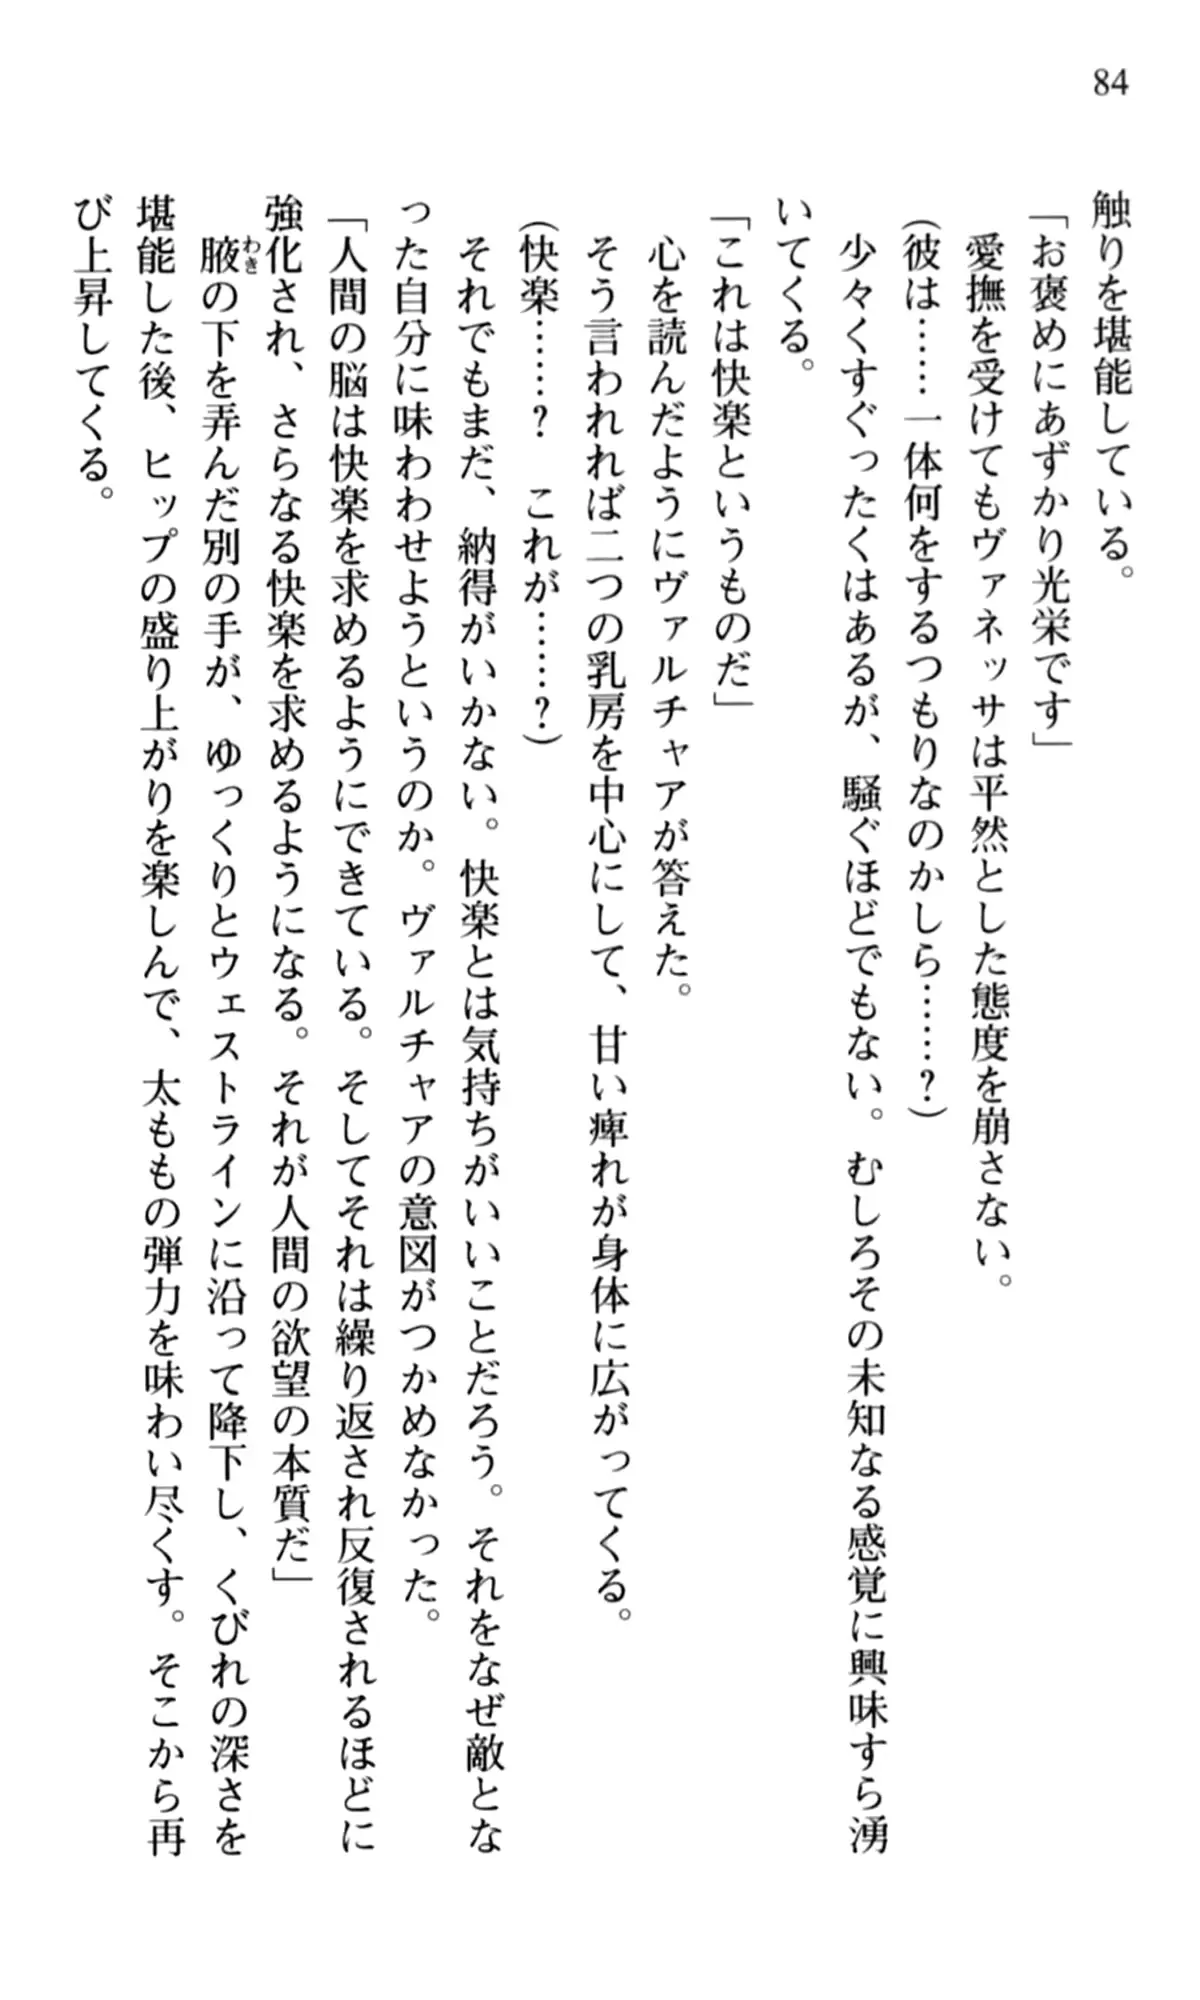 84
触りを堪能している。
「お褒めにあずかり光栄です」
愛撫を受けてもヴァネッサは平然とした態度を崩さない。
(彼は……一体何をするつもりなのかしら……?)
少々くすぐったくはあるが、騒ぐほどでもない。むしろその未知なる感覚に興味すら湧
いてくる。
「これは快楽というものだ」
心を読んだようにヴァルチャアが答えた。
そう言われれば二つの乳房を中心にして、甘い痺れが身体に広がってくる。
(快楽……? これが……?)
それでもまだ、納得がいかない。快楽とは気持ちがいいことだろう。それをなぜ敵とな
った自分に味わわせようというのか。ヴァルチャアの意図がつかめなかった。
「人間の脳は快楽を求めるようにできている。そしてそれは繰り返され反復されるほどに
強化され、さらなる快楽を求めるようになる。それが人間の欲望の本質だ」
わき
腋の下を弄んだ別の手が、ゆっくりとウェストラインに沿って降下し、くびれの深さを
堪能した後、ヒップの盛り上がりを楽しんで、太ももの弾力を味わい尽くす。そこから再
び上昇してくる。